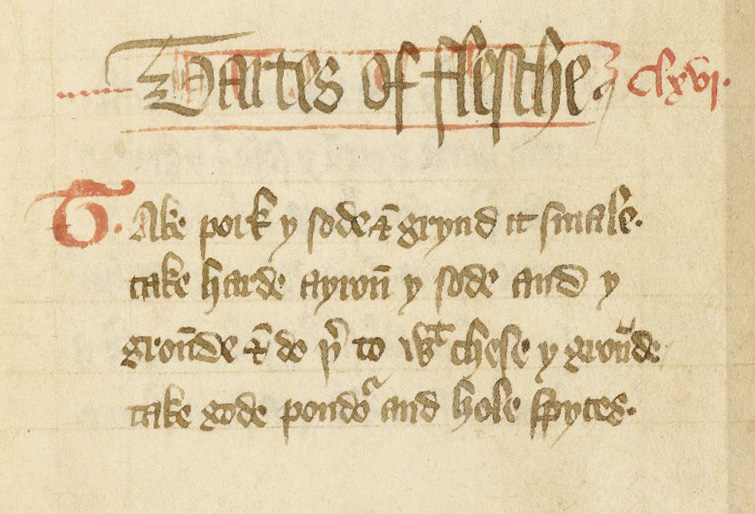 Tartes of flesche. clxvi.
T. Ake pork y sode ⁊̄ grynd it smale.
take harde ayron̄ y sode and y
groūde ⁊̄ do þ̉ to wᵗ chese y grou̓de
take gode poudoͬ and hole spyces.